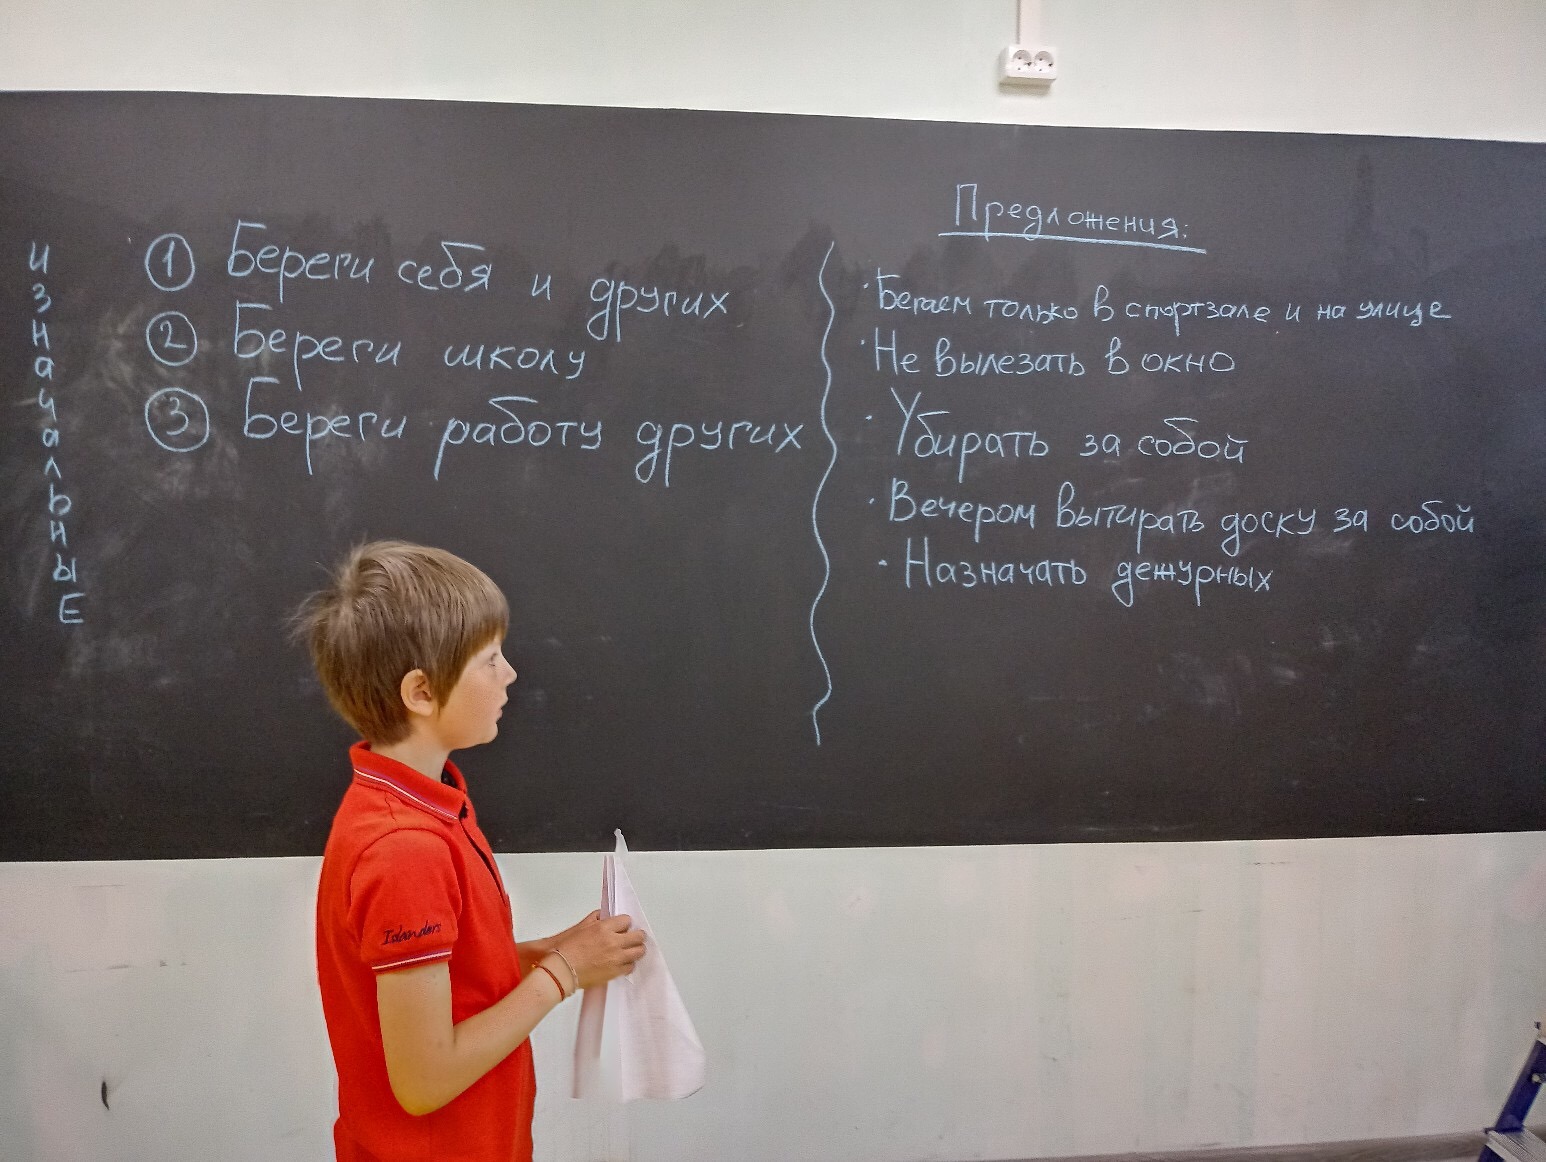 изначальныЕ
1 Береги себя и других
2 Береги школу
3 Береги работу других
Предложения:
· Бегаем только в спортзале и на улице
· Не вылезать в окно
· Убирать за собой
· Вечером вытирать доску за собой
· Назначать дежурных
Islanders